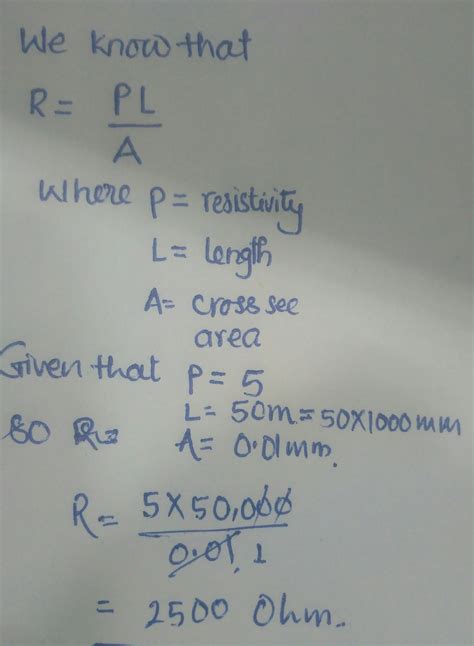 We know that
R = PL
A
Where P = resistivity
L = length
A = cross see
area
Given that P = 5
L = 50m = 50X1000mm
SO R = A = 0.01mm.
R = 5 X 50,000
0.01 1
= 2500 Ohm.